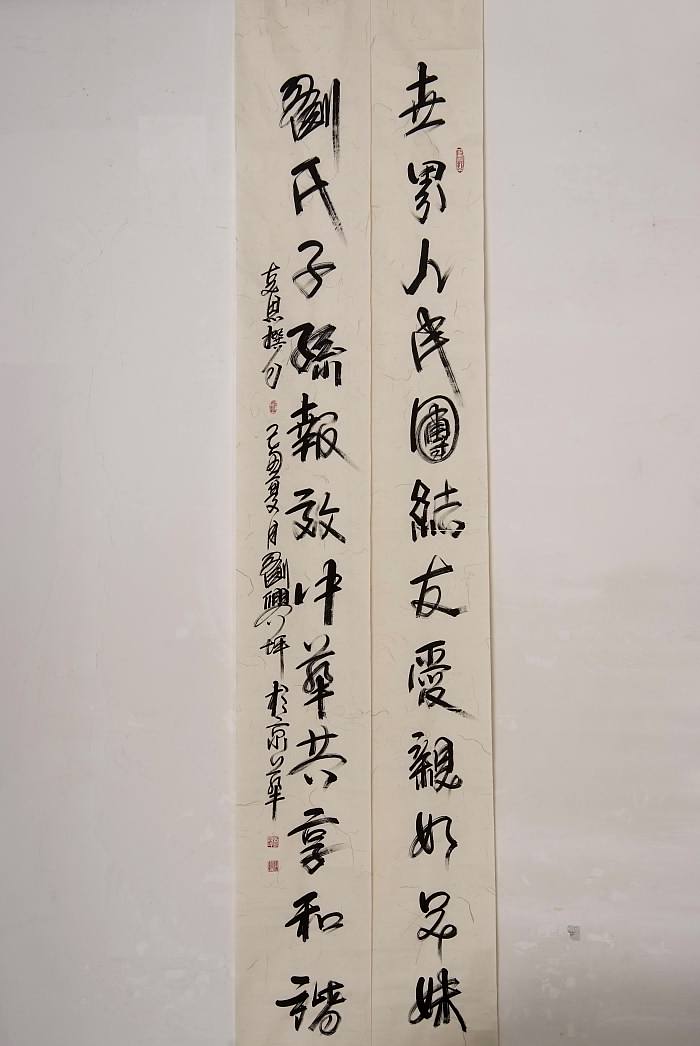 世界人民團結友愛親如兄妹
劉氏子孫報效中華共享和諧
撰句
己丑夏月劉興坪於京華